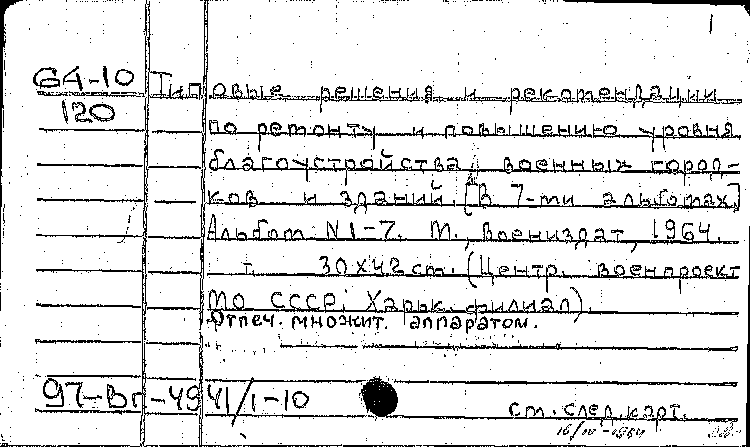 1
64-10 Типовые решения и рекомендации
120
по ремонту и повышению уровня
благоустройства военных город-
ков и зданий. [В 7-ми альбомах]
Альбом N1-7. М., Воениздат, 1964.
т. 30x42 см. (Центр. военпроект
МО СССР. Харьк. филиал).
Отпеч. множит. аппаратом.
97-Вп-4941/1-10
см. след. карт.